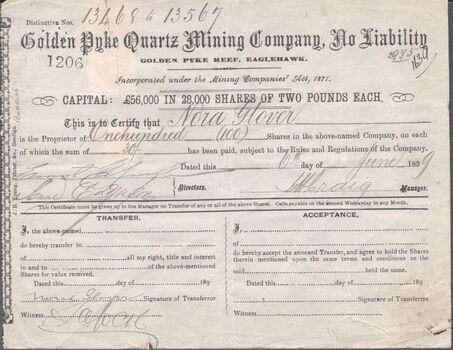 Distinctive Nos. 13468 to 13567
Golden Pyke Quartz Mining Company, No Liability
GOLDEN PYKE REEF, EAGLEHAWK.
1206
Incorporated under the Mining Companies' Act, 1871.
CAPITAL: £56,000 IN 28,000 SHARES OF TWO POUNDS EACH,
This is to Certify that Nora Glover
is the Proprietor of Onehundred (100) Shares in the above-named Company, on each
of which the sum of 30/- has been paid, subject to the Rules and Regulations of the Company.
Dated this 6th day of June 1899
Directors.
Manager.
This Certificate must be given up to the Manager on Transfer of any or all of the above Shares. Calls payable on the Second Wednesday in any Month.
TRANSFER.
I, the above-named
do hereby transfer to
of all my right, title and interest
in and to of the above-mentioned
Shares for value received.
Dated this day of 189
Nora Glover Signature of Transferror
Witness
ACCEPTANCE.
I,
of
do hereby accept the annexed Transfer, and agree to hold the Shares
therein mentioned upon the same terms and conditions as the
said held the same.
Dated this day of 189
Signature of Transferree
Witness